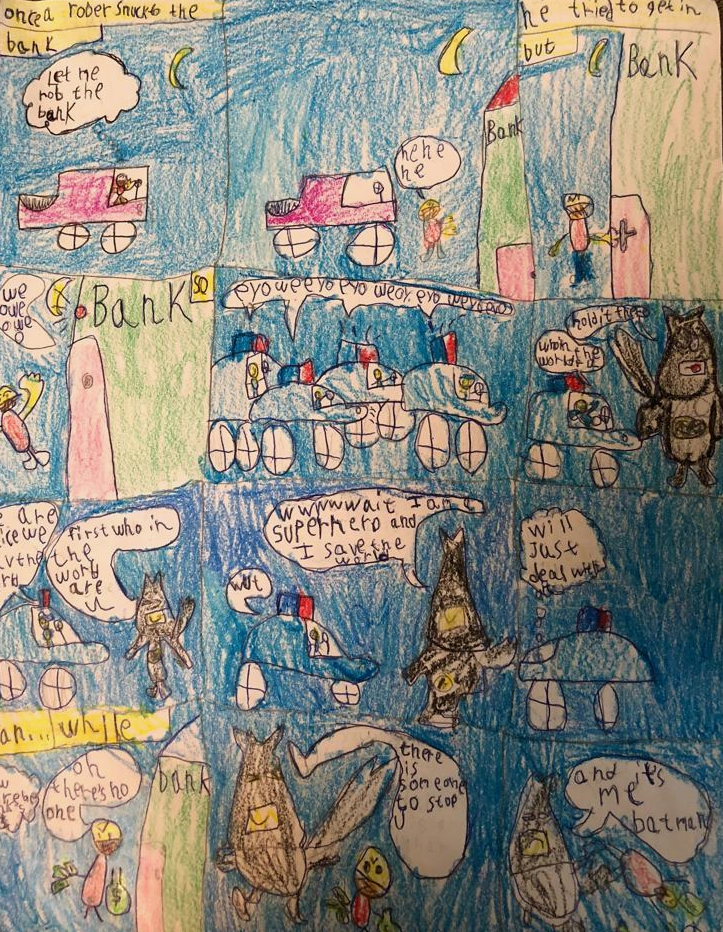 once a rober snuck to the
bank
Let me
rob the
bank
hehe
he
Bank
he tried to get in
but
Bank
we
owe
owe
Bank
so
eyo weeyo eyo weoy eyo weyoeyo
hold it there
who in
the
world
are
we
first who in
the
world
are
u
wut
wwwwwait I am a
superhero and
I save the
world
will
just
deal with
an... while
oh
there's no
one
bank
there
is
someone
to stop
and it's
me
batman